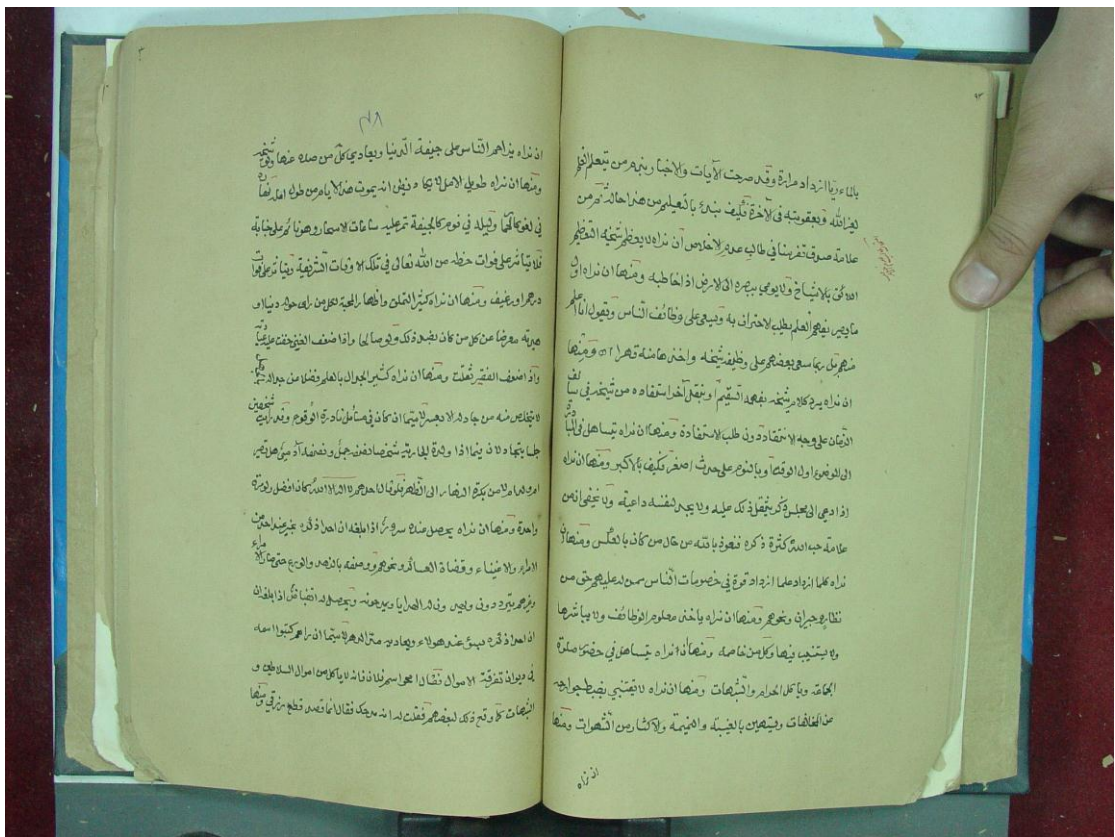 بالماء ريا ازداد مرارة وقد صرحت الآيات والاخبار بنهى من تعلم العلم
لغير الله وبعقوبته في الآخرة فكيف يبدئ بالتعليم من هذا حاله ثم من
علامة صدق تفرسنا في طالب عدم الاخلاص ان نراه لا يعظم شيخه التعظيم
اللائق بالاشياخ ولا يومي ببصره الى الارض اذا خاطبه ومنها ان نراه اول
ما يصير يفهم العلم يطلب الاحتراف به ويسعى على وظائف الناس ويقول انا اعلم
منهم بل ربما سعى بعضهم على وظيفة شيخه واخذها منه قهرا ومنها
ان نراه يرد كلام شيخه بفهمه السقيم او بنقل آخر استفاده من شيخه في سالف
الزمان على وجه الانتقاد دون طلب الاستفادة ومنها ان نراه يتساهل في المبادرة
الى الوضوء اول الوقت وبالنوم على حدث اصغر فكيف بالاكبر ومنها ان نراه
اذا دعي الى مجلس ذكر يثقل ذلك عليه ولا يجد لنفسه داعية ولا يخفى ان من
علامة حب الله كثرة ذكره فنعوذ بالله من حال من كان بالعكس ومنها ان
نراه كلما ازداد علما ازداد قوة في خصومات الناس ممن له عليهم حق من
نظار وجيران ونحوهم ومنها ان نراه ياخذ معلوم الوظائف ولا يباشرها
ولا يستنيب فيها وكل من خاصمه ومنها ان نراه يتساهل في حضور صلوة
الجماعة وياكل الحرام والشبهات ومنها ان نراه لا يعتني بضبط جوارحه
عن المخالفات ويستهين بالغيبة والنميمة والاكثار من الشهوات ومنها
ان نراه
٤٨
ان نراه يزاحم الناس على جيفة الدنيا ويعادي كل من صده عنها
ومنها ان نراه طويل الامل لا يكاد يظن انه يموت هذه الايام من طول امله نهاره
في لغو وليله في نوم كالجيفة تمر عليه ساعات الاسحار وهو نائم على جنابة
فلا يتاثر على فوات حظه من الله تعالى في تلك الاوقات الشريفة ويتاثر على فوات
درهم او رغيف ومنها ان نراه كثير التملق واظهار المحبة لكل من راى حوله دنيا او
معرضا عن كل من كان بضد ذلك ولو صالحا واذا ضعف الغني خفت عليه عيادته
واذا ضعف الفقير ثقلت ومنها ان نراه كثير الجدال بالعلم فضلا عن
لا يتخلص منه من جادله الا بعسر لا سيما ان كان في مسائل نادرة الوقوع وقد رايت شخصين
جلسا يتجادلان فيما اذا ولدت الجارية شخصا نصفه جمل ونصفه آدمي هل تصير
ام ولد ام لا من بكرة النهار الى الظهر فلو قال احدهم لا اله الا الله كان افضل
واحدة ومنها ان نراه يحصل عنده سرور اذا بلغه ان احدا ذكره بخير عند احد من
الامراء والاغنياء وقضاة العساكر ونحوهم ووصفه بالزهد والورع حتى صار الامراء
وغيرهم يترددون اليه ويرسلون له الهدايا ويرجونه ويحصل له انقباض اذا بلغه ان
احدا ذكره بسوء عند هولاء ويعاديه متى الدهر لا سيما ان راهم كتبوا اسمه
في ديوان تفرقة الاموال فقال امحوا اسم فلان فانه لا ياكل من اموال السلاطين و
الشبهات كما وقع ذلك لبعضهم فقلت له انه مدحك فقال انما قصد قطع رزقي ومنها